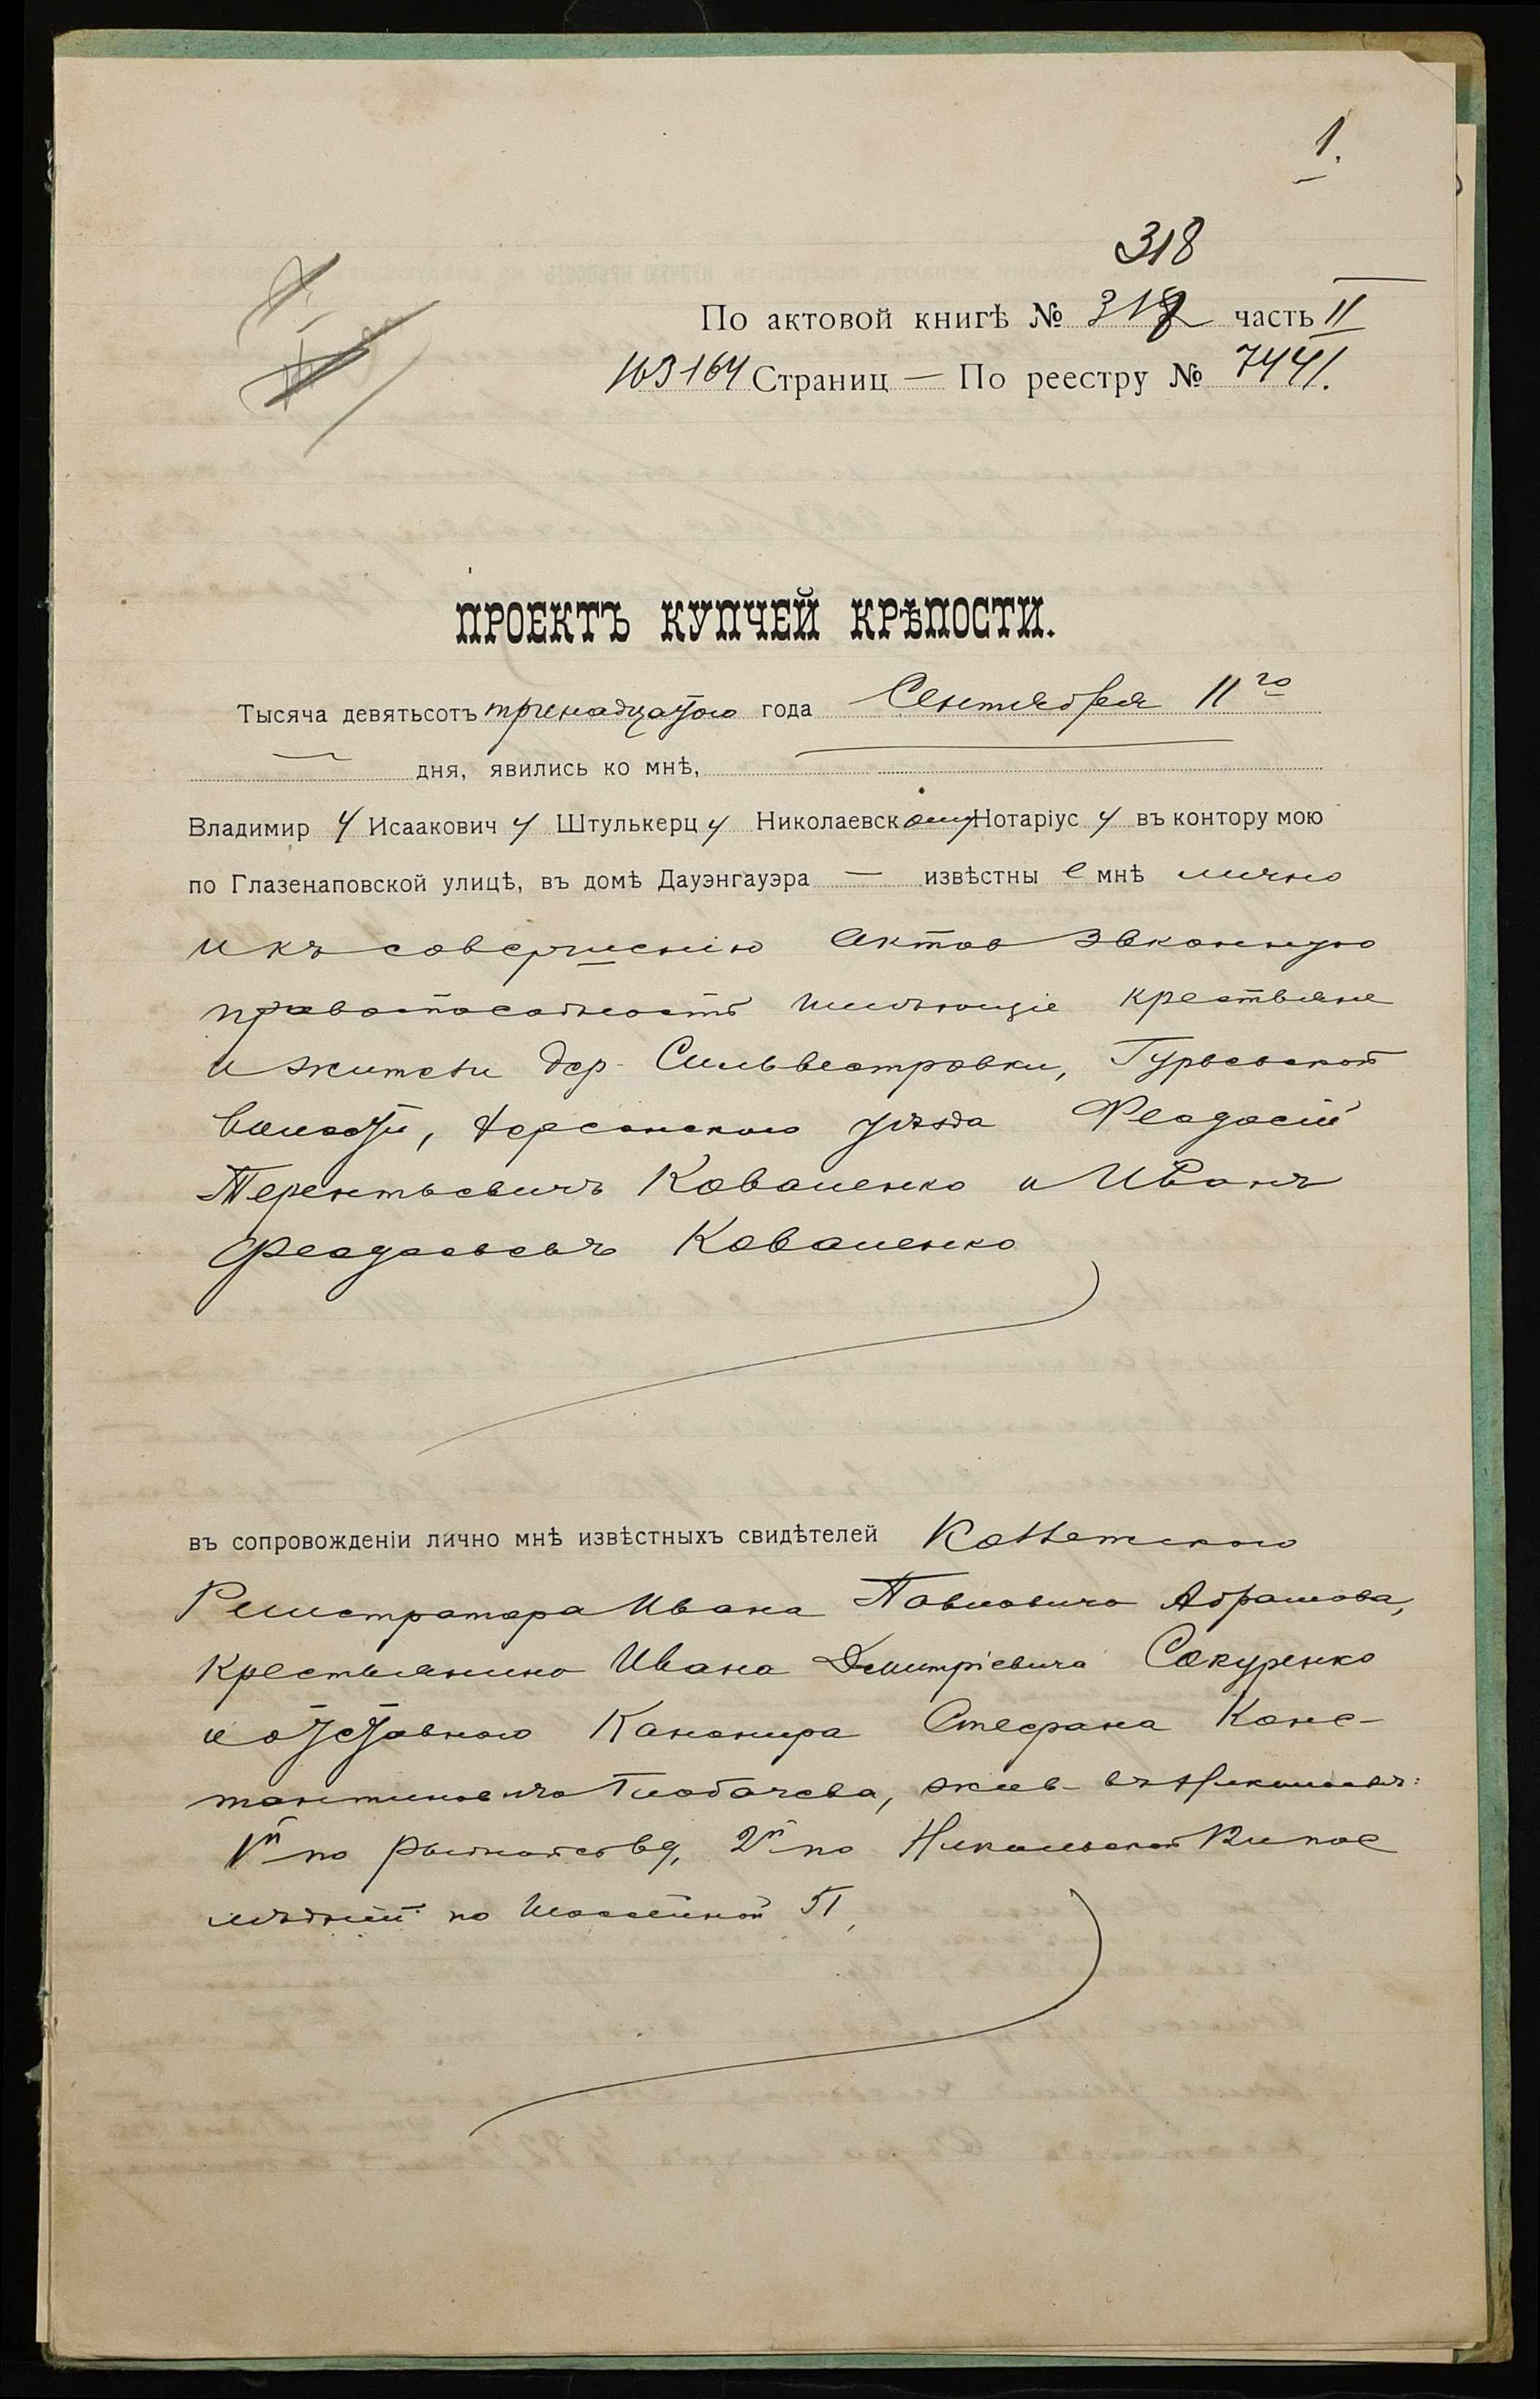 1.
318
По актовой книгѣ № 318 часть II
163 164 Страниц — По реестру № 7441.
ПРОЕКТЪ КУПЧЕЙ КРѢПОСТИ.
Тысяча девятьсотъ тринадцатого года Сентября 11го
— дня, явились ко мнѣ,
Владимиру Исааковичу Штулькерцу Николаевскому Нотаріусу въ контору мою
по Глазенаповской улицѣ, въ домѣ Дауэнгауэра — извѣстные мнѣ лично
и къ совершенію актов законную
правоспособность имѣющіе крестьяне
и жители дер. Сильвестровки, Гурьевской
волости, Херсонского уѣзда Феодосій
Терентьевичъ Коваленко и Иванъ
Феодосьевъ Коваленко
въ сопровожденіи лично мнѣ извѣстныхъ свидѣтелей Коллежского
Регистратора Ивана Павловича Абрамова,
Крестьянина Ивана Дмитріевича Сакуренко
и отставного Канонира Стефана Конс-
тантиновича Глобачева, жив. въ Николаевѣ:
1й по 2й по Никольской и пос
лѣдній по Шоссейной 51,